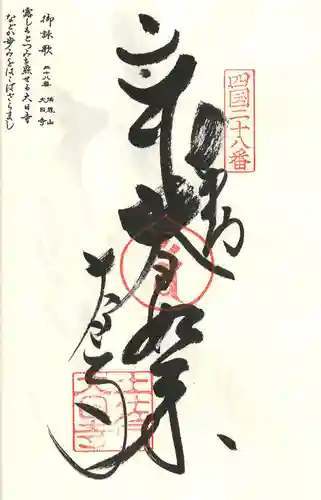 四國二十八番
奉納
大日如来
大日寺
土佐
大日寺
御詠歌
二十八番 法界山
大日寺
露しもとつみを照せる大日寺
などか歩みをはこばざらまし